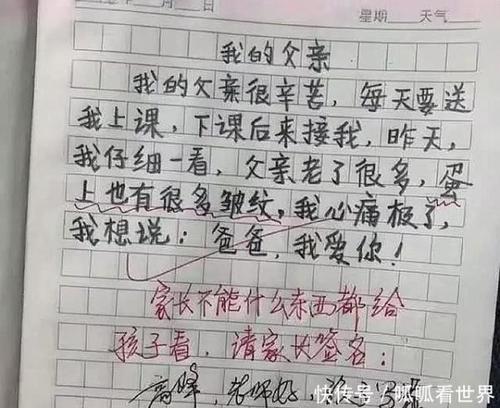 月 日 星期 天气
我的父亲
我的父亲很辛苦，每天要送
我上课，下课后来接我，昨天，
我仔细一看，父亲老了很多，蛋
上也有很多皱纹，我心痛极了，
我想说：爸爸，我爱你！
家长不能什么东西都给
孩子看，请家长签名：
高峰，老师好，
快传号 / 呱呱看世界